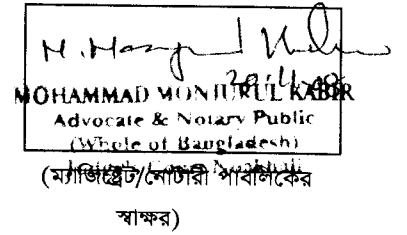 MOHAMMAD MONJURUL KABIR
Advocate & Notary Public
(Whole of Bangladesh)
(ম্যাজিস্ট্রেট/নোটারী পাবলিকের
স্বাক্ষর)